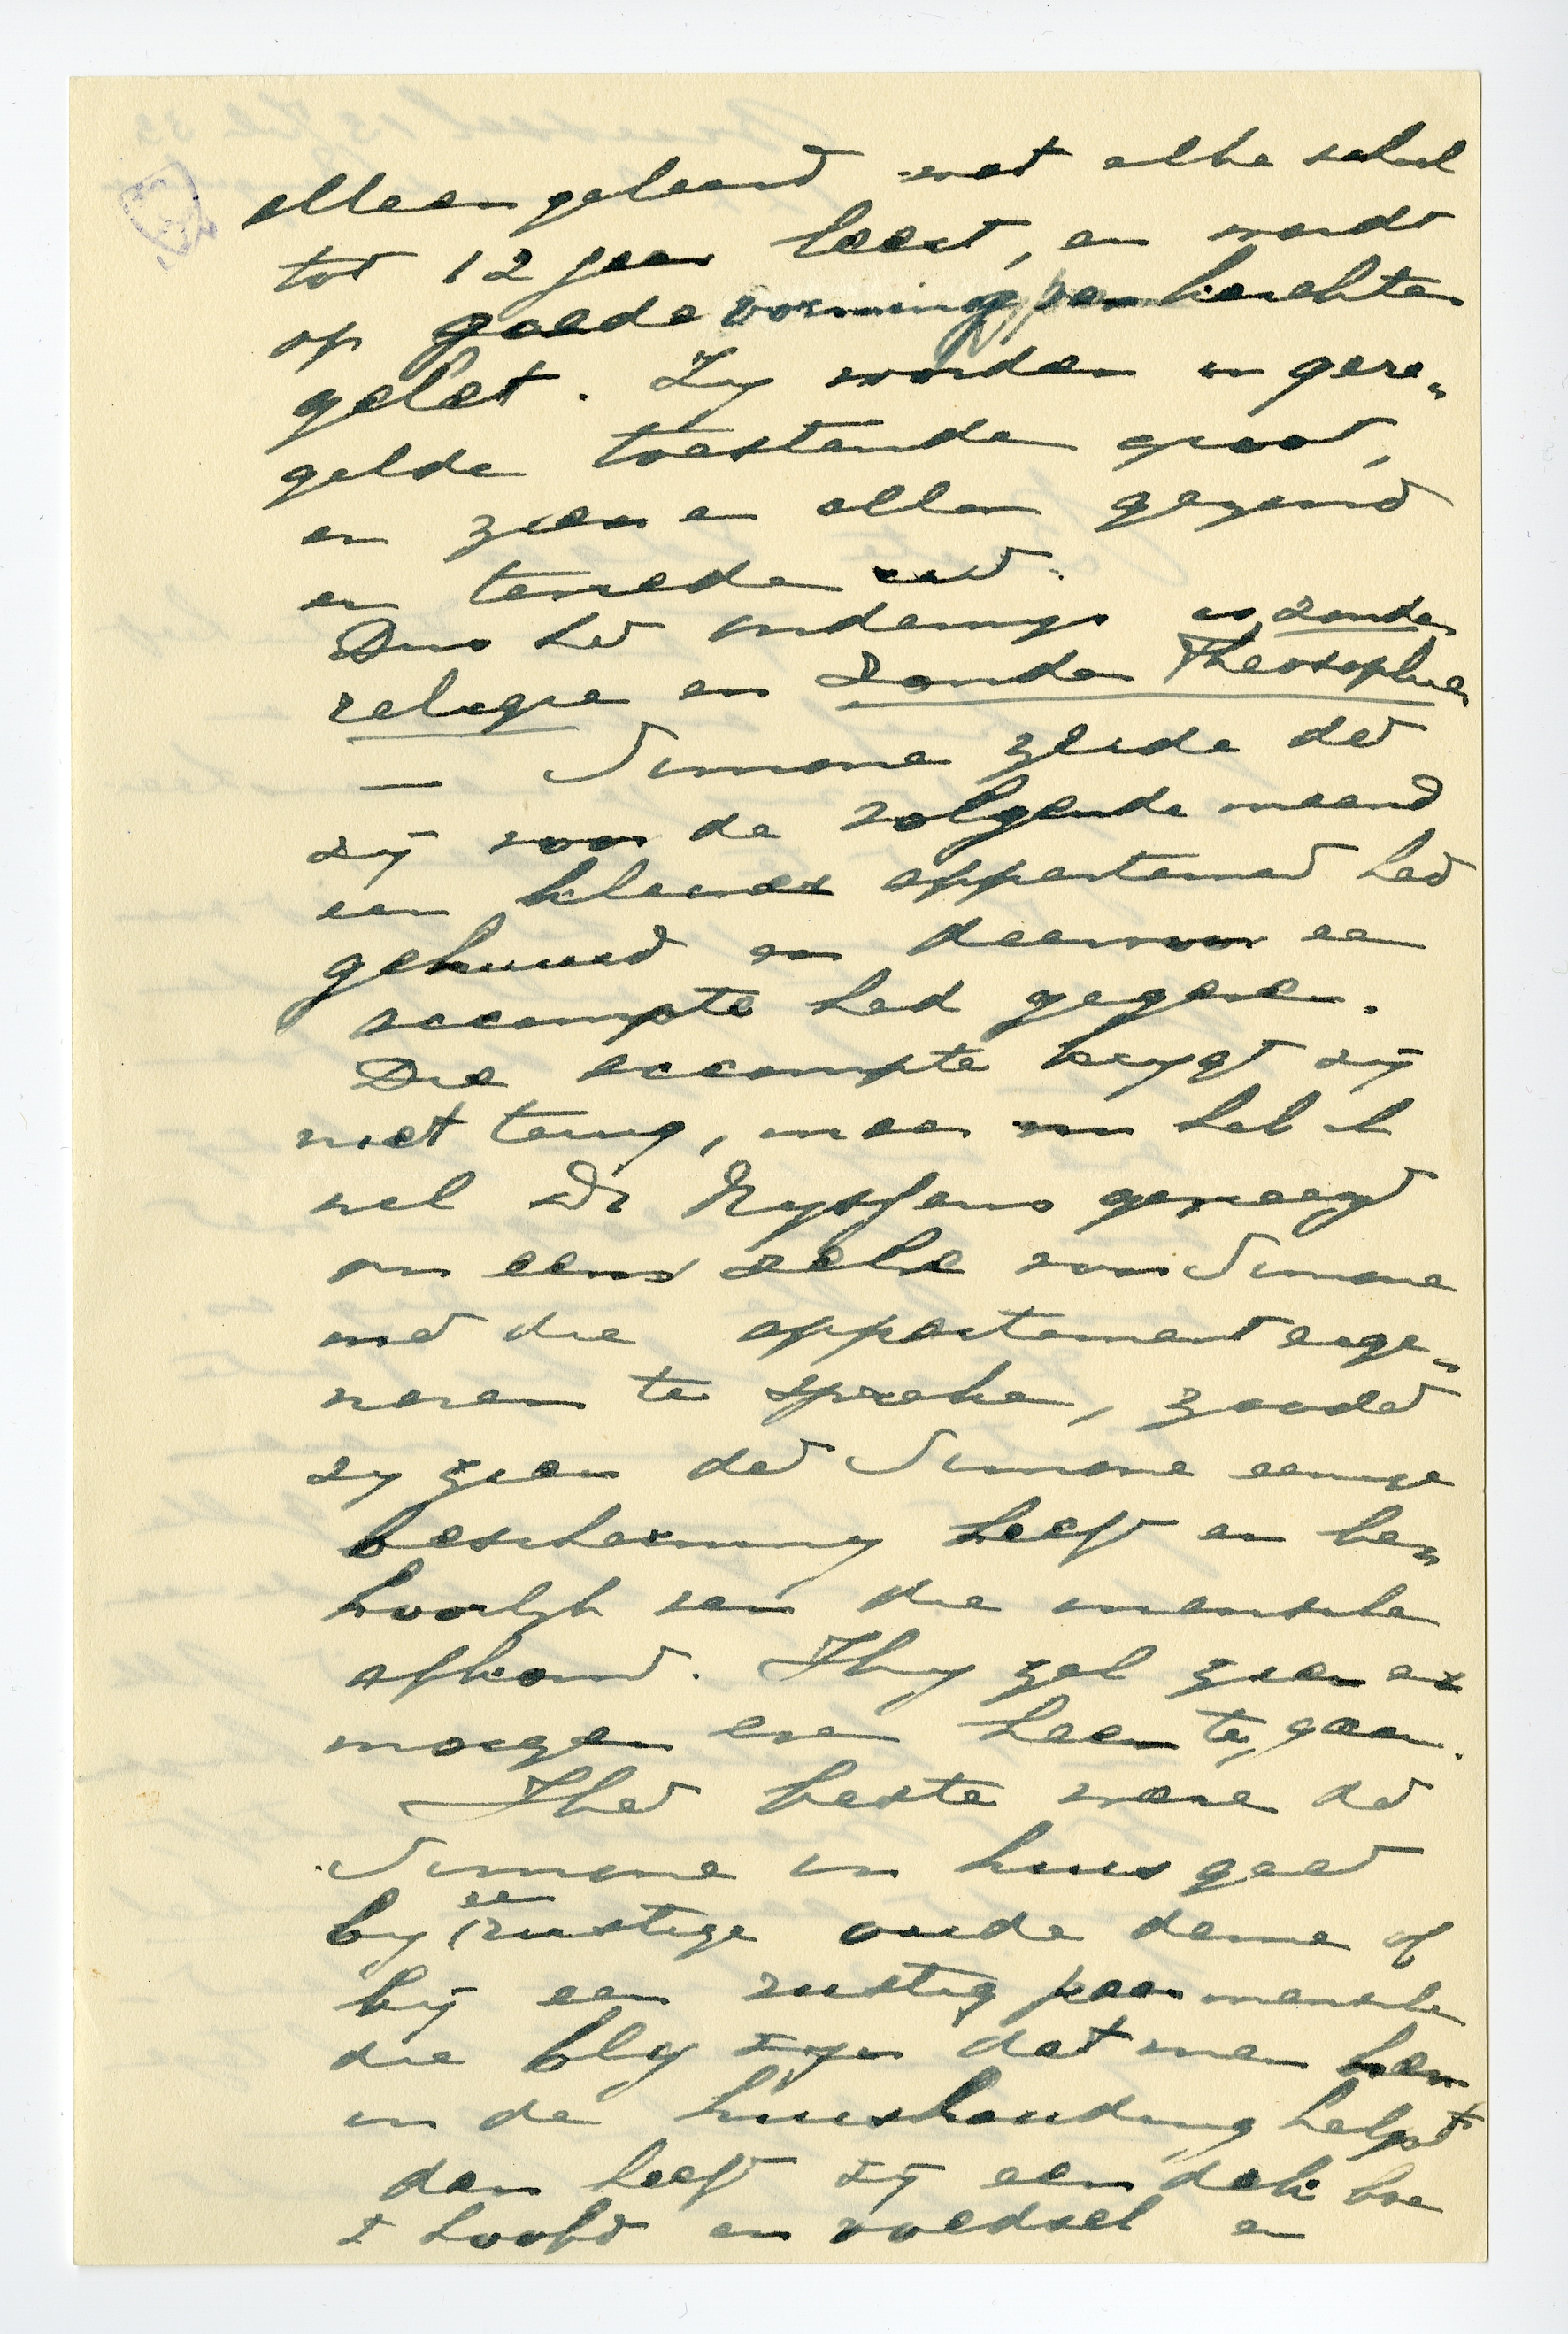 alleen geleerd wat elke school
tot 12 jaar leert, en wordt
op goede vorming van karakter
gelet. Zy worden in gere„
gelde toestanden groot,
en zien en allen gezond
en tevreden uit.
Dus het onderwys is zonder
religie en zonder Theosophie.
— Simone zeide dat
zij voor de volgende maand
een kleiner appartement had
gehuurd en daarvoor een
accompte had gegeven.
Die accompte krygt zij
niet terug, maar nu heb ik
wel Dr Nyssens gevraagd
om eens zelve voor Simone
met die appartement eige„
naren te spreken, zoodat
zy zien dat Simone eenige
bescherming heeft en be„
hoorlyk van die menschen
afkomt. Hy zal zien er
morgen even heen te gaan.
Het beste ware dat
Simone in huis gaat
by een rustige oude dame of
bij een rustig paar menschen
die bly zyn dat men hen
in de huishouding helpt
dan heeft zij een dak bov
't hoofd en voedsel en